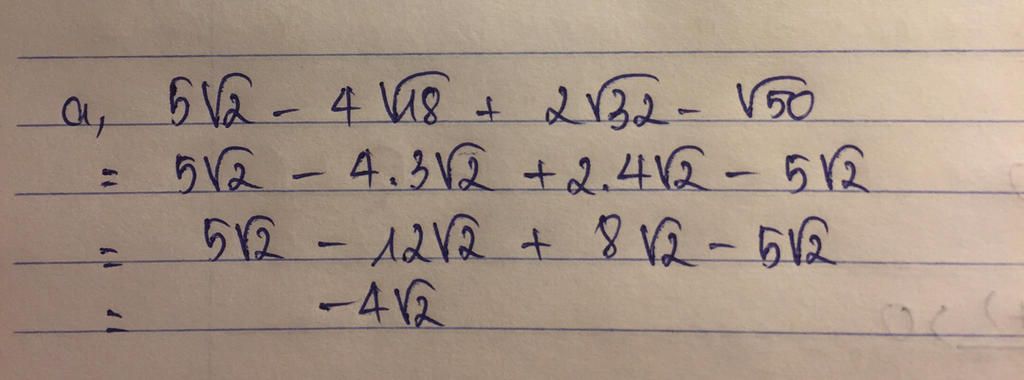 a, 5√2 - 4√18 + 2√32 - √50
= 5√2 - 4.3√2 + 2.4√2 - 5√2
= 5√2 - 12√2 + 8√2 - 5√2
= -4√2